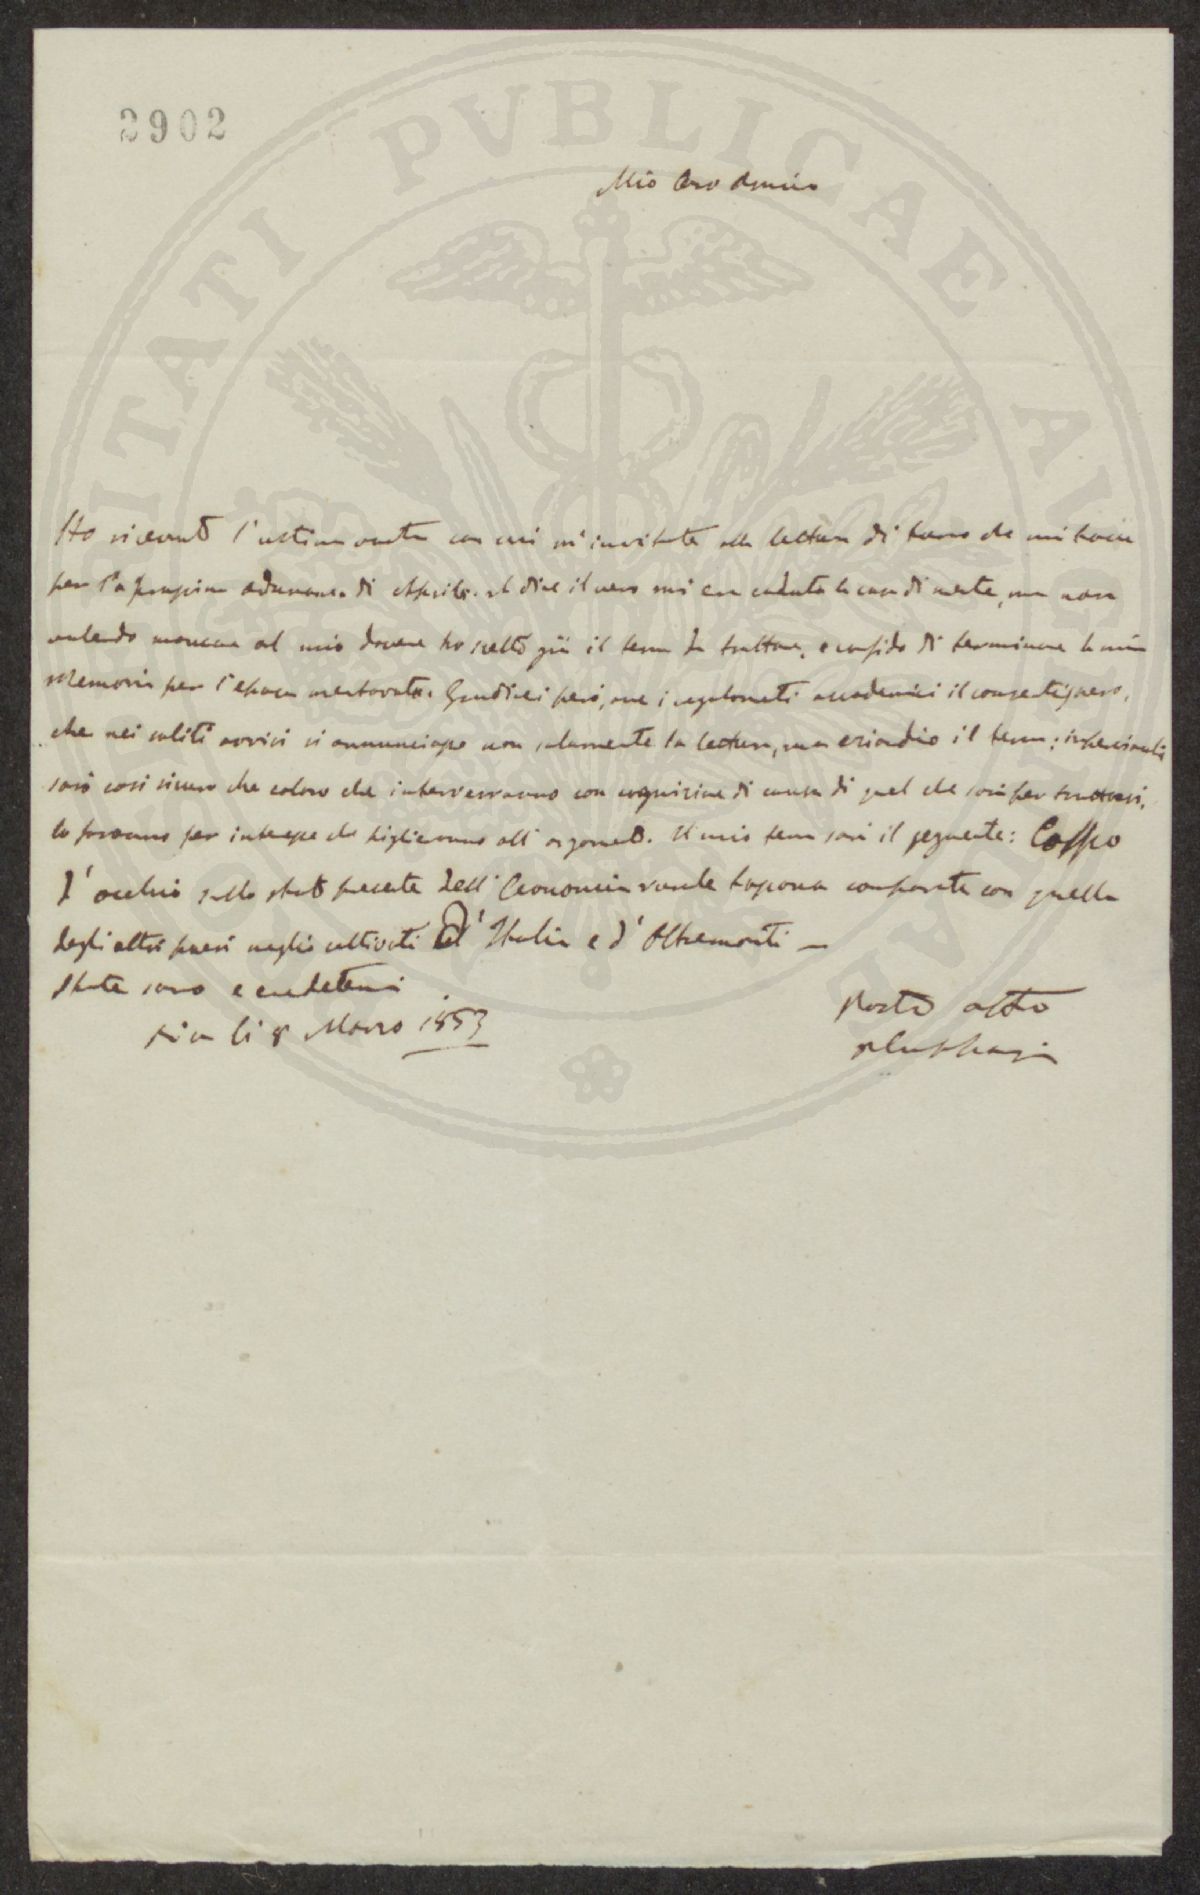 2902
Mio Caro Amico
Ho ricevuto l'ultima vostra con cui m'invitate alla lettura di turno che mi tocca
per l'a prossima adunanza di Aprile. A dire il vero mi era caduta la cosa di mente, ma non
volendo mancare al mio dovere ho scelto già il tema da trattare, e confido di terminare la mia
Memoria per l'epoca mentovata. Gradirei però, ove i regolamenti accademici il consentissero,
che nei soliti avvisi si annunciasse non solamente la lettura, ma eziandio il tema;
sarò così sicuro che coloro che interverranno con cognizione di causa di quel che sarà per trattarsi,
lo faranno per interesse che piglieranno all'argomento. Il mio tema sarà il seguente: Colpo
d'occhio sullo stato presente dell'Economia rurale toscana comparata con quella
degli altri paesi meglio coltivati d'Italia e d'Oltremonti —
State sano e credetemi
li 8 Marzo 1853
Vostro affo
PVBLICAE